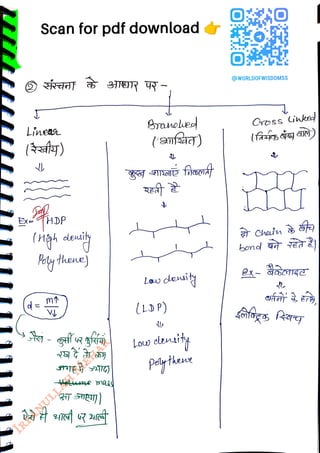 Scan for pdf download 👉
@WORLDOFWISDOMSS
② संरचना के आधार पर -
Linear
(रेखीय)
Ex- HDP
(High density
Polythene)
d = m↑
V↓
जैसे - कुर्सी पर कुर्सियाँ
रख दें तो कम
जगह में ज्यादा
Volume mass
आ जाएगा।
ऐसे ही थाली पर थाली
Branched
(शाखित)
कुछ शाखाएं निकलती
रहती हैं
Low density
(LDP)
Low density
Polythene
Cross Linked
(तिर्यक बंध वाले)
दो Chain के बीच
bond बने रहते हैं।
Ex- बैकेलाइट
बर्तनों के हत्थे,
इलेक्ट्रिक स्विच